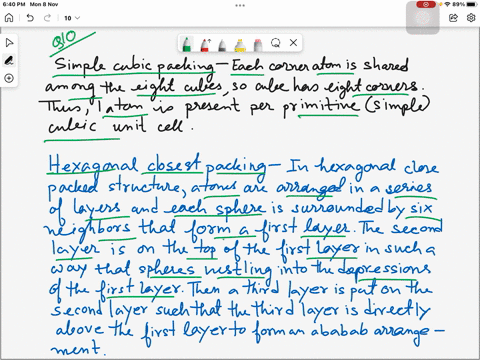 6:40 PM Mon 8 Nov
89%
10
Q10
Simple cubic packing - Each corner atom is shared
among the eight cubes, so cube has eight corners.
Thus, 1 atom is present per primitive (simple)
cubic unit cell.
Hexagonal closest packing - In hexagonal close
packed structure, atoms are arranged in a series
of layers and each sphere is surrounded by six
neighbors that form a first layer. The second
layer is on the top of the first layer in such a
way that spheres nustling into the depressions
of the first layer. Then a third layer is put on the
second layer such that the third layer is directly
above the first layer to form an ababab arrange-
ment.